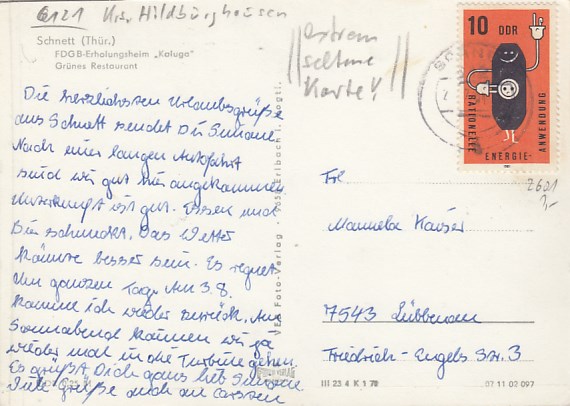 6121 Krs. Hildburghausen
extrem
seltene
Karte!
Schnett (Thür.)
FDGB-Erholungsheim „Kaluga"
Grünes Restaurant
10 DDR
RATIONELLE
ENERGIE-
ANWENDUNG
Die herzlichsten Urlaubsgrüße
aus Schnett sendet Dir Simone.
Nach einer langen Autofahrt
sind wir gut hier angekommen
Unterkunft ist gut. Essen und
Bier schmeckt. Das Wetter
könnte besser sein. Es regnet
den ganzen Tag. Am 3.8.
komme ich wieder zurück. Am
Sonnabend können wir ja
wieder mal in die Turbine gehen.
Es grüßt Dich ganz lieb Simone
Viele Grüße auch an Carsten
VEB Foto-Verlag · 9659 Erlbach i. Vogtl.
Frl.
Manuela Kaiser
7543 Lübbenau
Friedrich-Engels Str. 3
2601
III 23 4 K 1 78
07 11 02 097